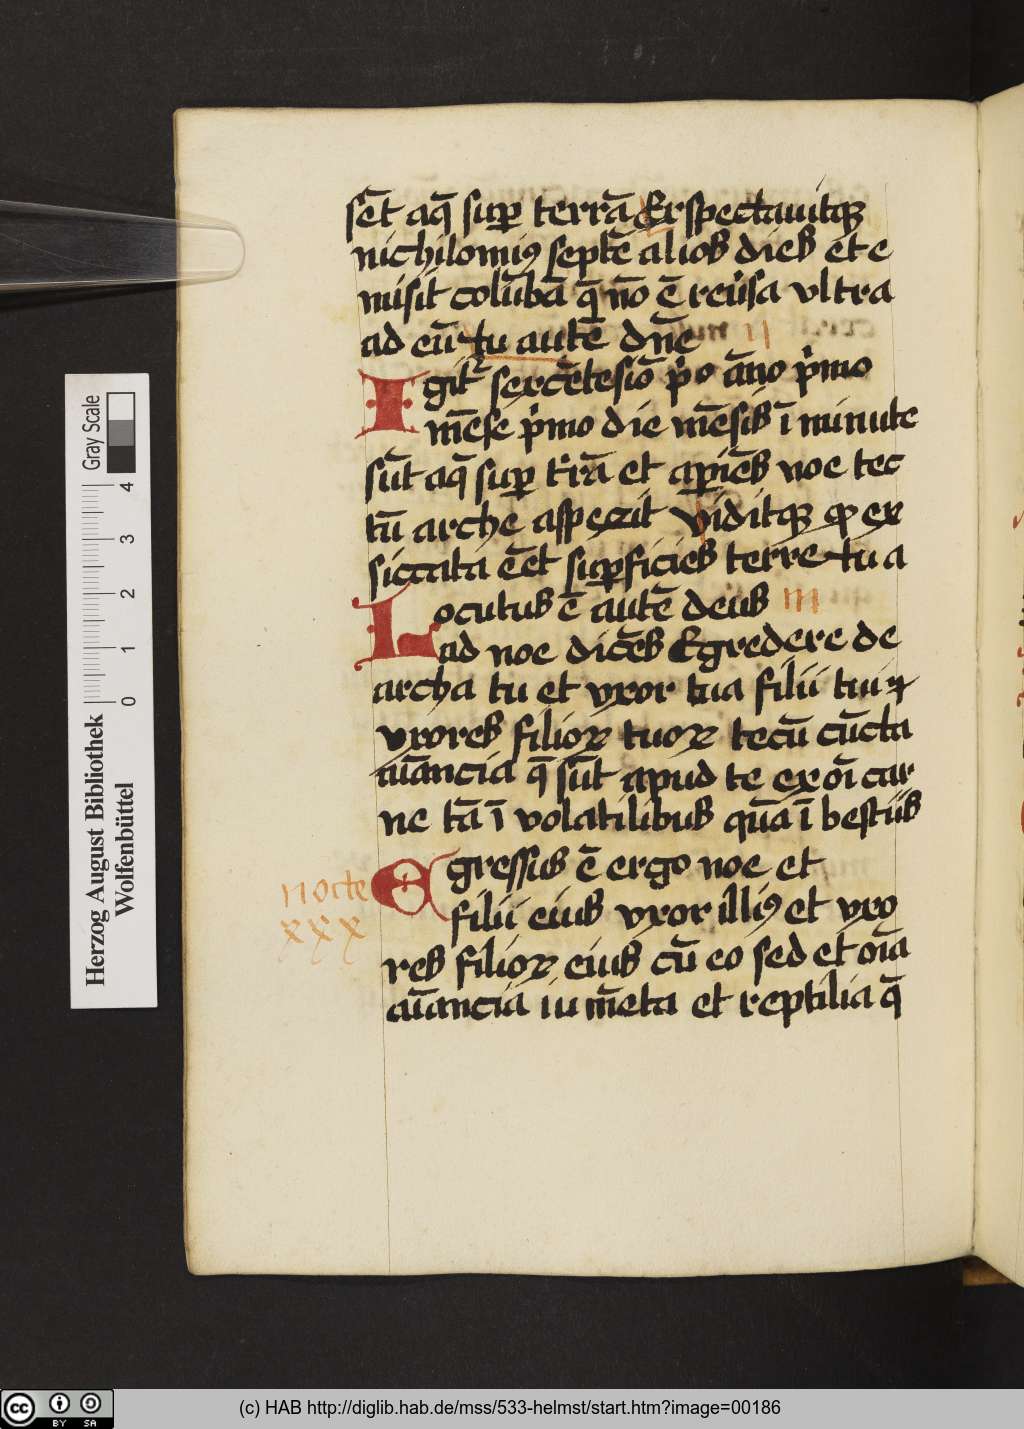 sēt aq̄ suꝑ terrā Exspectauitqꝫ
nichilomiꝰ septē alios dies et e
misit colūbā q̄ nō ē reu̾sa vltra
ad eū tu autē dn̄e
II
Igit᷑ sexcētesīo pͥo āno pͥmo
mēse pͥmo die mēsis ī minute
sūt aq̄ suꝑ t̾rā et aꝑiēs noe tec
tū arche aspexit viditqꝫ ꝙ ex
siccata ēēt suꝑficies terre tu a
Locutus ē autē deus
III
ad noe dicēs Egredere de
archa tu et vxor tua filii tui ⁊
vxores filioꝝ tuoꝝ tecū cūcta
aīancia q̄ sūt apud te ex oī car
ne tā ī volatilibus quā ī bestiis
Egressus ē ergo noe et
nocte
xxx
filii eius vxor illiꝰ et vxo
res filioꝝ eius cū eo sed et oīa
aīancia iumēta et reptilia q̄
Gray Scale
0 1 2 3 4
Herzog August Bibliothek
Wolfenbüttel
cc BY SA
(c) HAB http://diglib.hab.de/mss/533-helmst/start.htm?image=00186